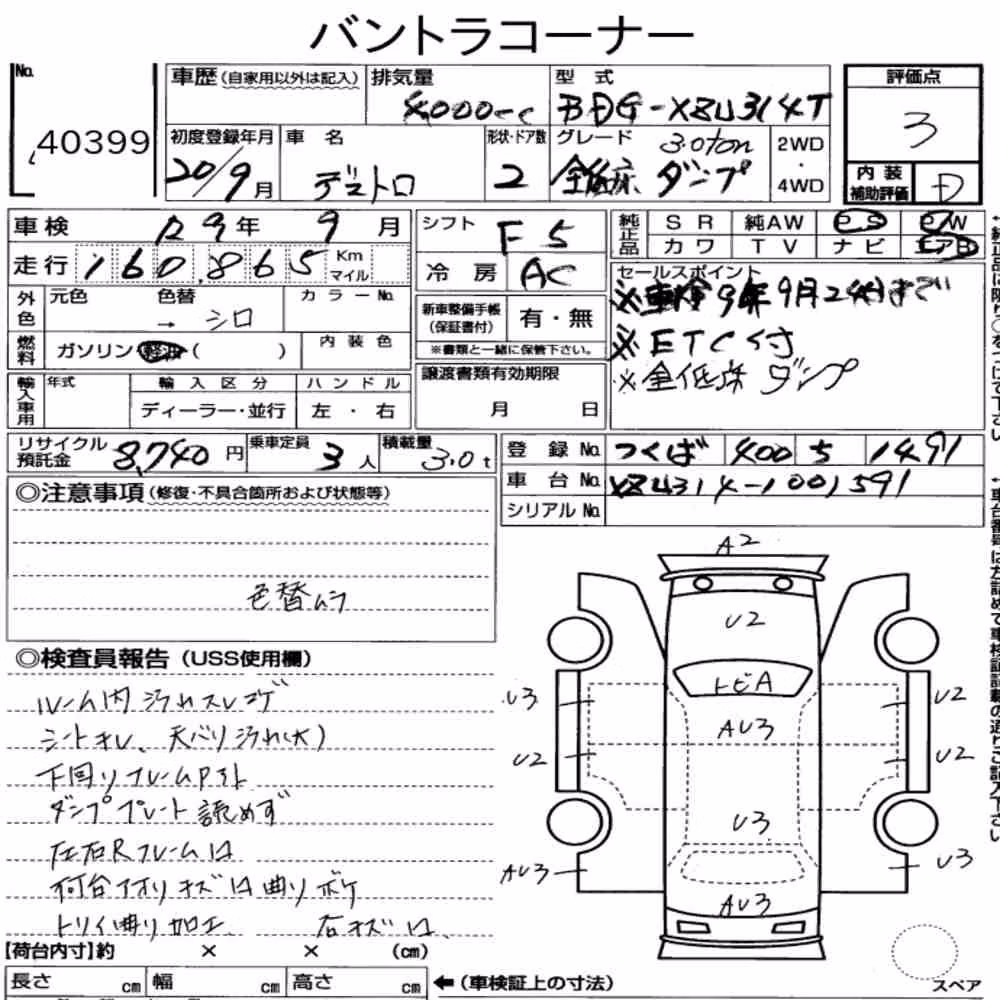 バントラコーナー
No.
40399
車歴 (自家用以外は記入)
排気量
4000cc
型式
BDG-XZU314T
評価点
3
初度登録年月
20/9月
車名
デュトロ
形状・ドア数
2
グレード
3.0ton
全低床 ダンプ
2WD
・
4WD
内装
補助評価
D
車検
R9年 9月
シフト
F5
純正品
SR 純AW PS PW
カワ TV ナビ エアB
走行 160,865 Km マイル
冷房 AC
セールスポイント
※車検9年9月24日まで
※ETC付
※全低床 ダンプ
外色
元色 色替 カラーNo.
→ シロ
新車整備手帳
(保証書付)
有・無
※書類と一緒に保管下さい。
燃料
ガソリン 軽油 ( )
内装色
輸入車用
年式
輸入区分
ハンドル
ディーラー・並行
左・右
譲渡書類有効期限
月 日
リサイクル
預託金
8,740円
乗車定員
3人
積載量
3.0t
登録No. つくば 400 ち 1491
車台No. XZU314-1001591
シリアルNo.
◎注意事項 (修復・不具合箇所および状態等)
色替ムラ
◎検査員報告 (USS使用欄)
ルーム内汚れスレコゲ
シートキレ、天バリ汚れ(大)
下回りフレームPサト
ダンププレート読めず
左右Rフレーム凹
荷台アオリキズ凹曲リボケ
トリイ曲リ加工 右キズ凹
【荷台内寸】約 × × (cm)
長さ cm 幅 cm 高さ cm
←(車検証上の寸法)
A2
U2
トビA
AU3
U3
AU3
U3
U2
AU3
U2
U2
U3
スペア